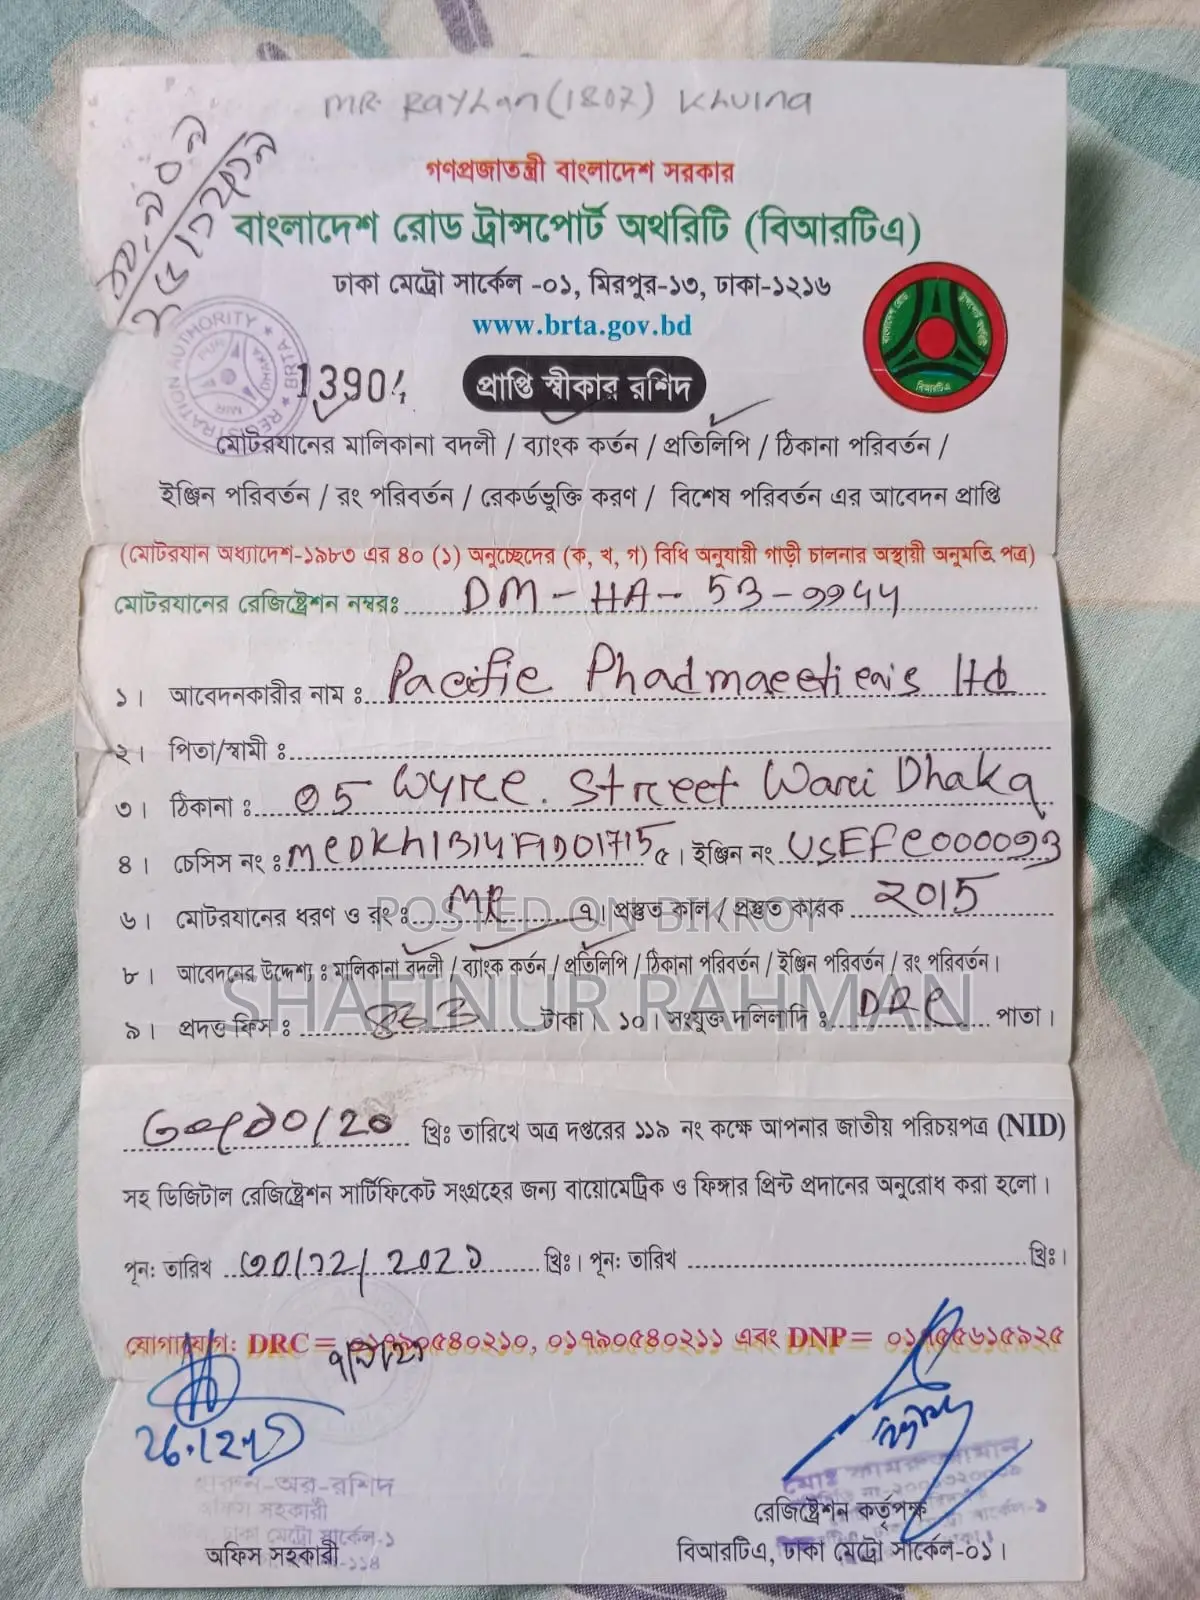 MR. Rayhan (1807) Khulna
গণপ্রজাতন্ত্রী বাংলাদেশ সরকার
বাংলাদেশ রোড ট্রান্সপোর্ট অথরিটি (বিআরটিএ)
ঢাকা মেট্রো সার্কেল -০১, মিরপুর-১৩, ঢাকা-১২১৬
www.brta.gov.bd
13904
প্রাপ্তি স্বীকার রশিদ
মোটরযানের মালিকানা বদলী / ব্যাংক কর্তন / প্রতিলিপি / ঠিকানা পরিবর্তন /
ইঞ্জিন পরিবর্তন / রং পরিবর্তন / রেকর্ডভুক্তি করণ / বিশেষ পরিবর্তন এর আবেদন প্রাপ্তি
(মোটরযান অধ্যাদেশ-১৯৮৩ এর ৪০ (১) অনুচ্ছেদের (ক, খ, গ) বিধি অনুযায়ী গাড়ী চালনার অস্থায়ী অনুমতি পত্র)
মোটরযানের রেজিষ্ট্রেশন নম্বরঃ DM - HA - 53 -
১। আবেদনকারীর নাম ঃ Pacific Phadmaceticais Ltd
২। পিতা/স্বামী ঃ
৩। ঠিকানা ঃ 05 Wyre. Street Wari Dhaka
৪। চেসিস নং ঃ ৫। ইঞ্জিন নং
৬। মোটরযানের ধরণ ও রং ঃ MR ৭। প্রস্তুত কাল / প্রস্তুত কারক 2015
৮। আবেদনের উদ্দেশ্য ঃ মালিকানা বদলী / ব্যাংক কর্তন / প্রতিলিপি / ঠিকানা পরিবর্তন / ইঞ্জিন পরিবর্তন / রং পরিবর্তন।
৯। প্রদত্ত ফিস ঃ টাকা। ১০। সংযুক্ত দলিলাদি ঃ DRC পাতা।
POSTED ON BIKROY
SHAFINUR RAHMAN
খ্রিঃ তারিখে অত্র দপ্তরের ১১৯ নং কক্ষে আপনার জাতীয় পরিচয়পত্র (NID)
সহ ডিজিটাল রেজিষ্ট্রেশন সার্টিফিকেট সংগ্রহের জন্য বায়োমেট্রিক ও ফিঙ্গার প্রিন্ট প্রদানের অনুরোধ করা হলো।
পূনঃ তারিখ খ্রিঃ। পূনঃ তারিখ খ্রিঃ।
যোগাযোগ: DRC = ০১৭৯০৫৪০২১০, ০১৭৯০৫৪০২১১ এবং DNP =
হারুন-অর-রশিদ
অফিস সহকারী
ঢাকা মেট্রো সার্কেল-১
অফিস সহকারী
রেজিষ্ট্রেশন কর্তৃপক্ষ
বিআরটিএ, ঢাকা মেট্রো সার্কেল-০১।